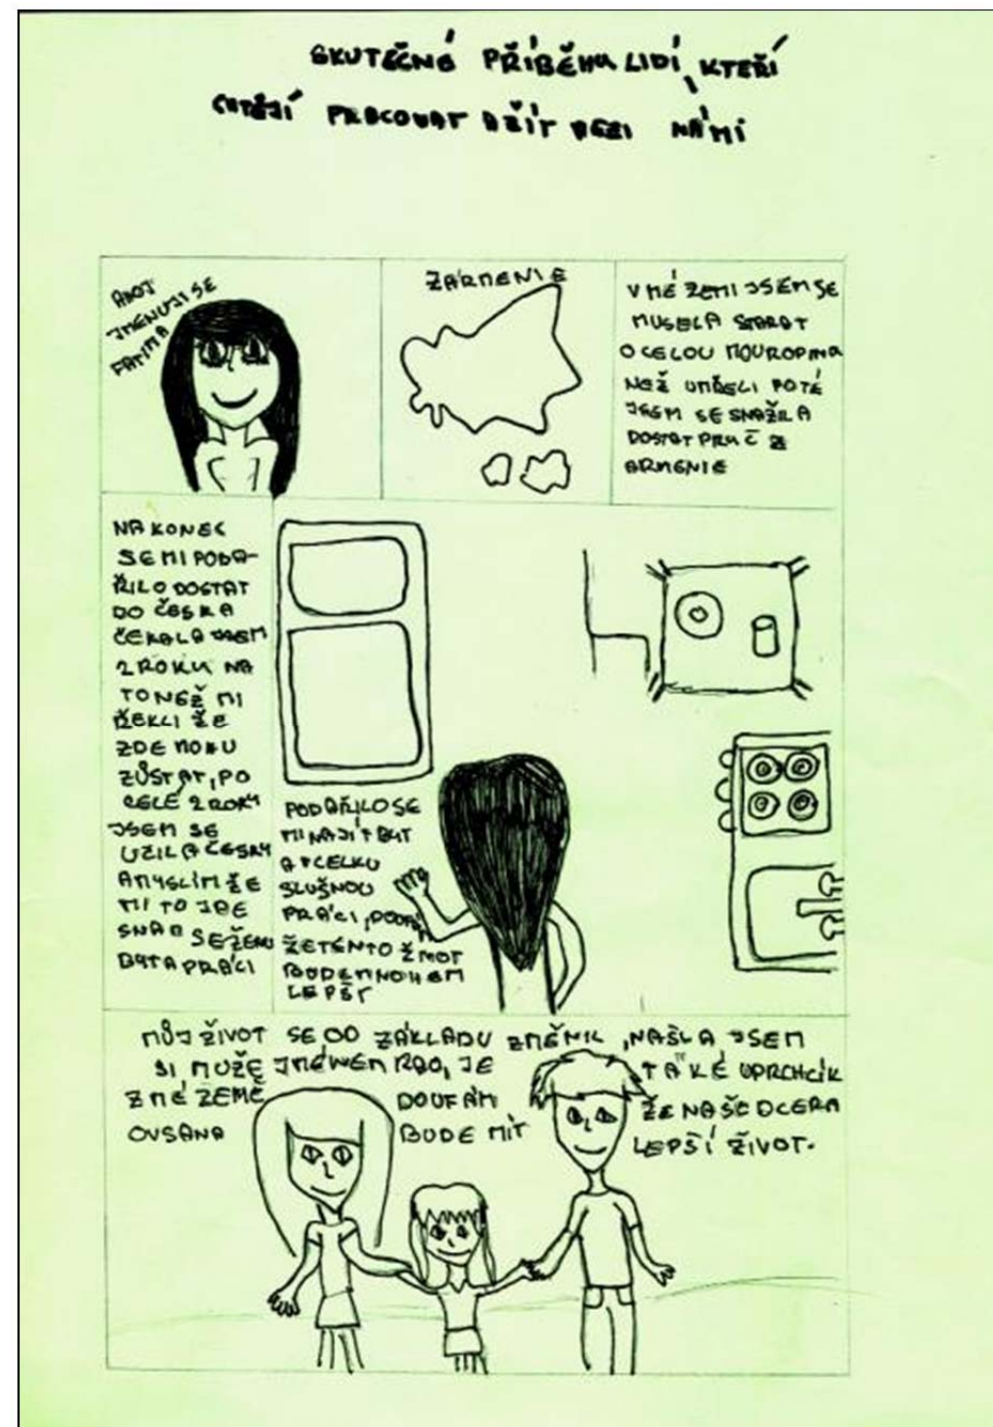 SKUTEČNÉ PŘÍBĚHY LIDÍ, KTEŘÍ
CHTĚJÍ PRACOVAT A ŽÍT MEZI NÁMI
AHOJ
JMENUJI SE
FATIMA
Z ARMENIE
V MÉ ZEMI JSEM SE
MUSELA STARAT
O CELOU MOU RODINU
NEŽ UMŘELI POTÉ
JSEM SE SNAŽILA
DOSTAT PRYČ Z
ARMENIE
NAKONEC
SE MI PODA-
ŘILO DOSTAT
DO ČESKA
ČEKALA JSEM
2 ROKY NA
TO NEŽ MI
ŘEKLI ŽE
ZDE MOHU
ZŮSTAT, PO
CELÉ 2 ROKY
JSEM SE
UČILA ČESKY
A MYSLÍM ŽE
MI TO JDE
SNAD SEŽENU
BYT A PRÁCI
PODAŘILO SE
MI NAJÍT BYT
A VCELKU
SLUŠNOU
PRÁCI, DOUFÁM
ŽE TENTO ŽIVOT
BUDE MNOHEM
LEPŠÍ
MŮJ ŽIVOT SE OD ZÁKLADU ZMĚNIL, NAŠLA JSEM
SI MUŽE, JE TAKÉ UPRCHLÍK
Z MÉ ZEMĚ DOUFÁM ŽE NAŠE DCERA
OVSANA BUDE MÍT LEPŠÍ ŽIVOT.